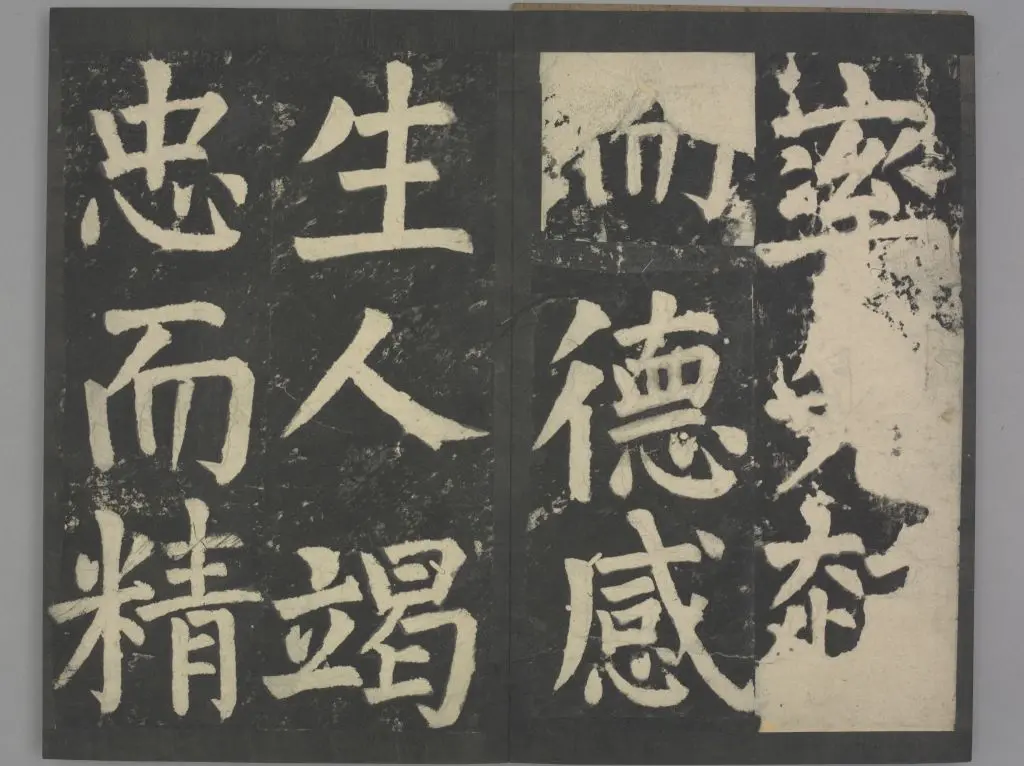 率
而德感
生人竭
忠而精